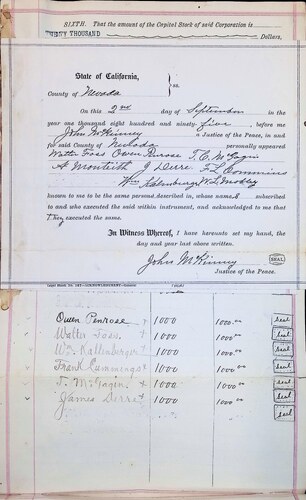 SIXTH. That the amount of the Capitol Stock of said Corporation is
THOUSAND Dollars,
State of California,
County of Nevada ss.
On this 2nd day of September in the
year one thousand eight hundred and ninety-five before me
John McKinney a Justice of the Peace, in and
for said County of Nevada personally appeared
Walter Foss Owen Penrose T. C. McFagin
A Monteith J Derre F L Commins
Wm Kalenburger W L Mobley
known to me to be the same person described in, whose names subscribed
to and who executed the said within instrument, and acknowledged to me that
they executed the same.
In Witness Whereof, I have hereunto set my hand, the
day and year last above written.
John McKinney SEAL
Justice of the Peace.
Owen Penrose x 1000 1000.00 seal
Walter Foss x 1000 1000.00 seal
Wm Kallenberger x 1000 1000.00 seal
Frank Cummings x 1000 1000.00 seal
T. McFagin x 1000 1000.00 seal
James Derre x 1000 1000.00 seal